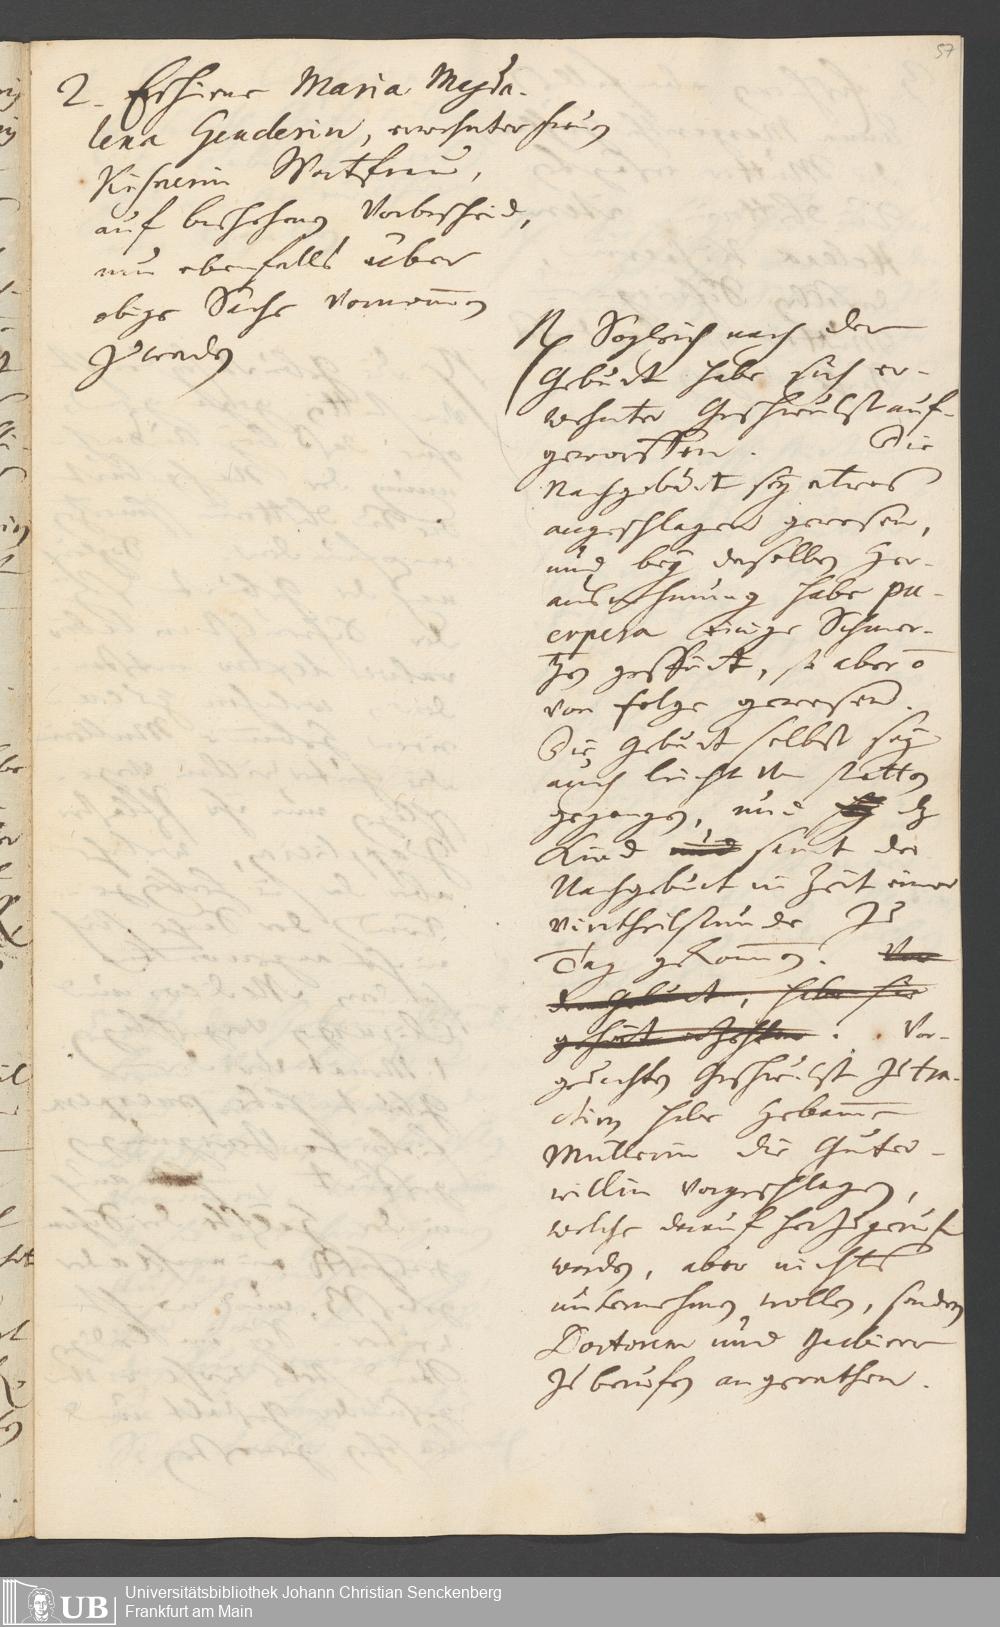 57
2. Erschiene Maria Magda-
lena Genderin, erwehnter frauen
Küfnerin Wartfrau,
auf beschehenen Vorbescheid,
um ebenfalls über
obige Sache vernom̄en
zu werden
Rx Sogleich nach der
Geburt habe sich er-
wehnter Geschwulst auf-
geworffen. Die
Nachgeburt sey etwas
angeschlagen gewesen,
und bey derselben her-
ausnehmung habe pu-
erpera einige Schmer-
tzen gespührt, so aber o
von folge gewesen.
Die Geburt selbst sey
auch leicht von statten
gegangen, und sey dz
Kind und samt der
Nachgeburt in Zeit einer
viertheilstunde zu
Tag gekom̄en. Vor
der Geburt, habe sie
gehört
Vor-
gedachten Geschwulst zu tra-
ctiren habe Hebam̄e
Müllerin die Guter-
willin vorgeschlagen,
welche darauf herzugeruff
worden, aber nichts
unternehmen wollen, sondern
Doctorem und Barbierer
zu beruffen angerathen.
UB
Universitätsbibliothek Johann Christian Senckenberg
Frankfurt am Main